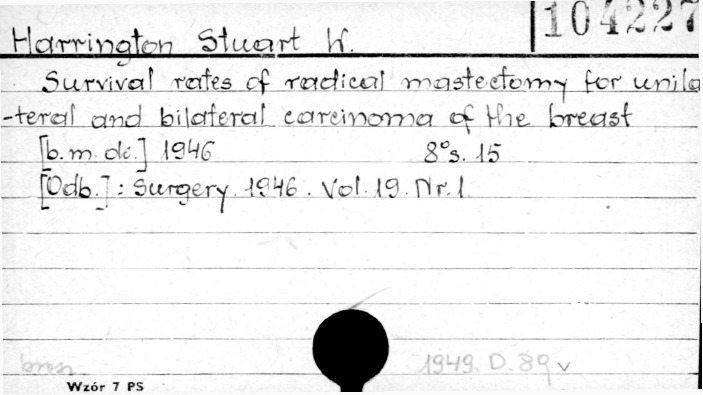 104227
Harrington Stuart W.
Survival rates of radical mastectomy for unila
-teral and bilateral carcinoma of the breast
[b. m. dr.] 1946 8° s. 15
[Odb.] : Surgery. 1946. Vol. 19. Nr. 1.
brosz.
1949. D. 89 v
Wzór 7 PS